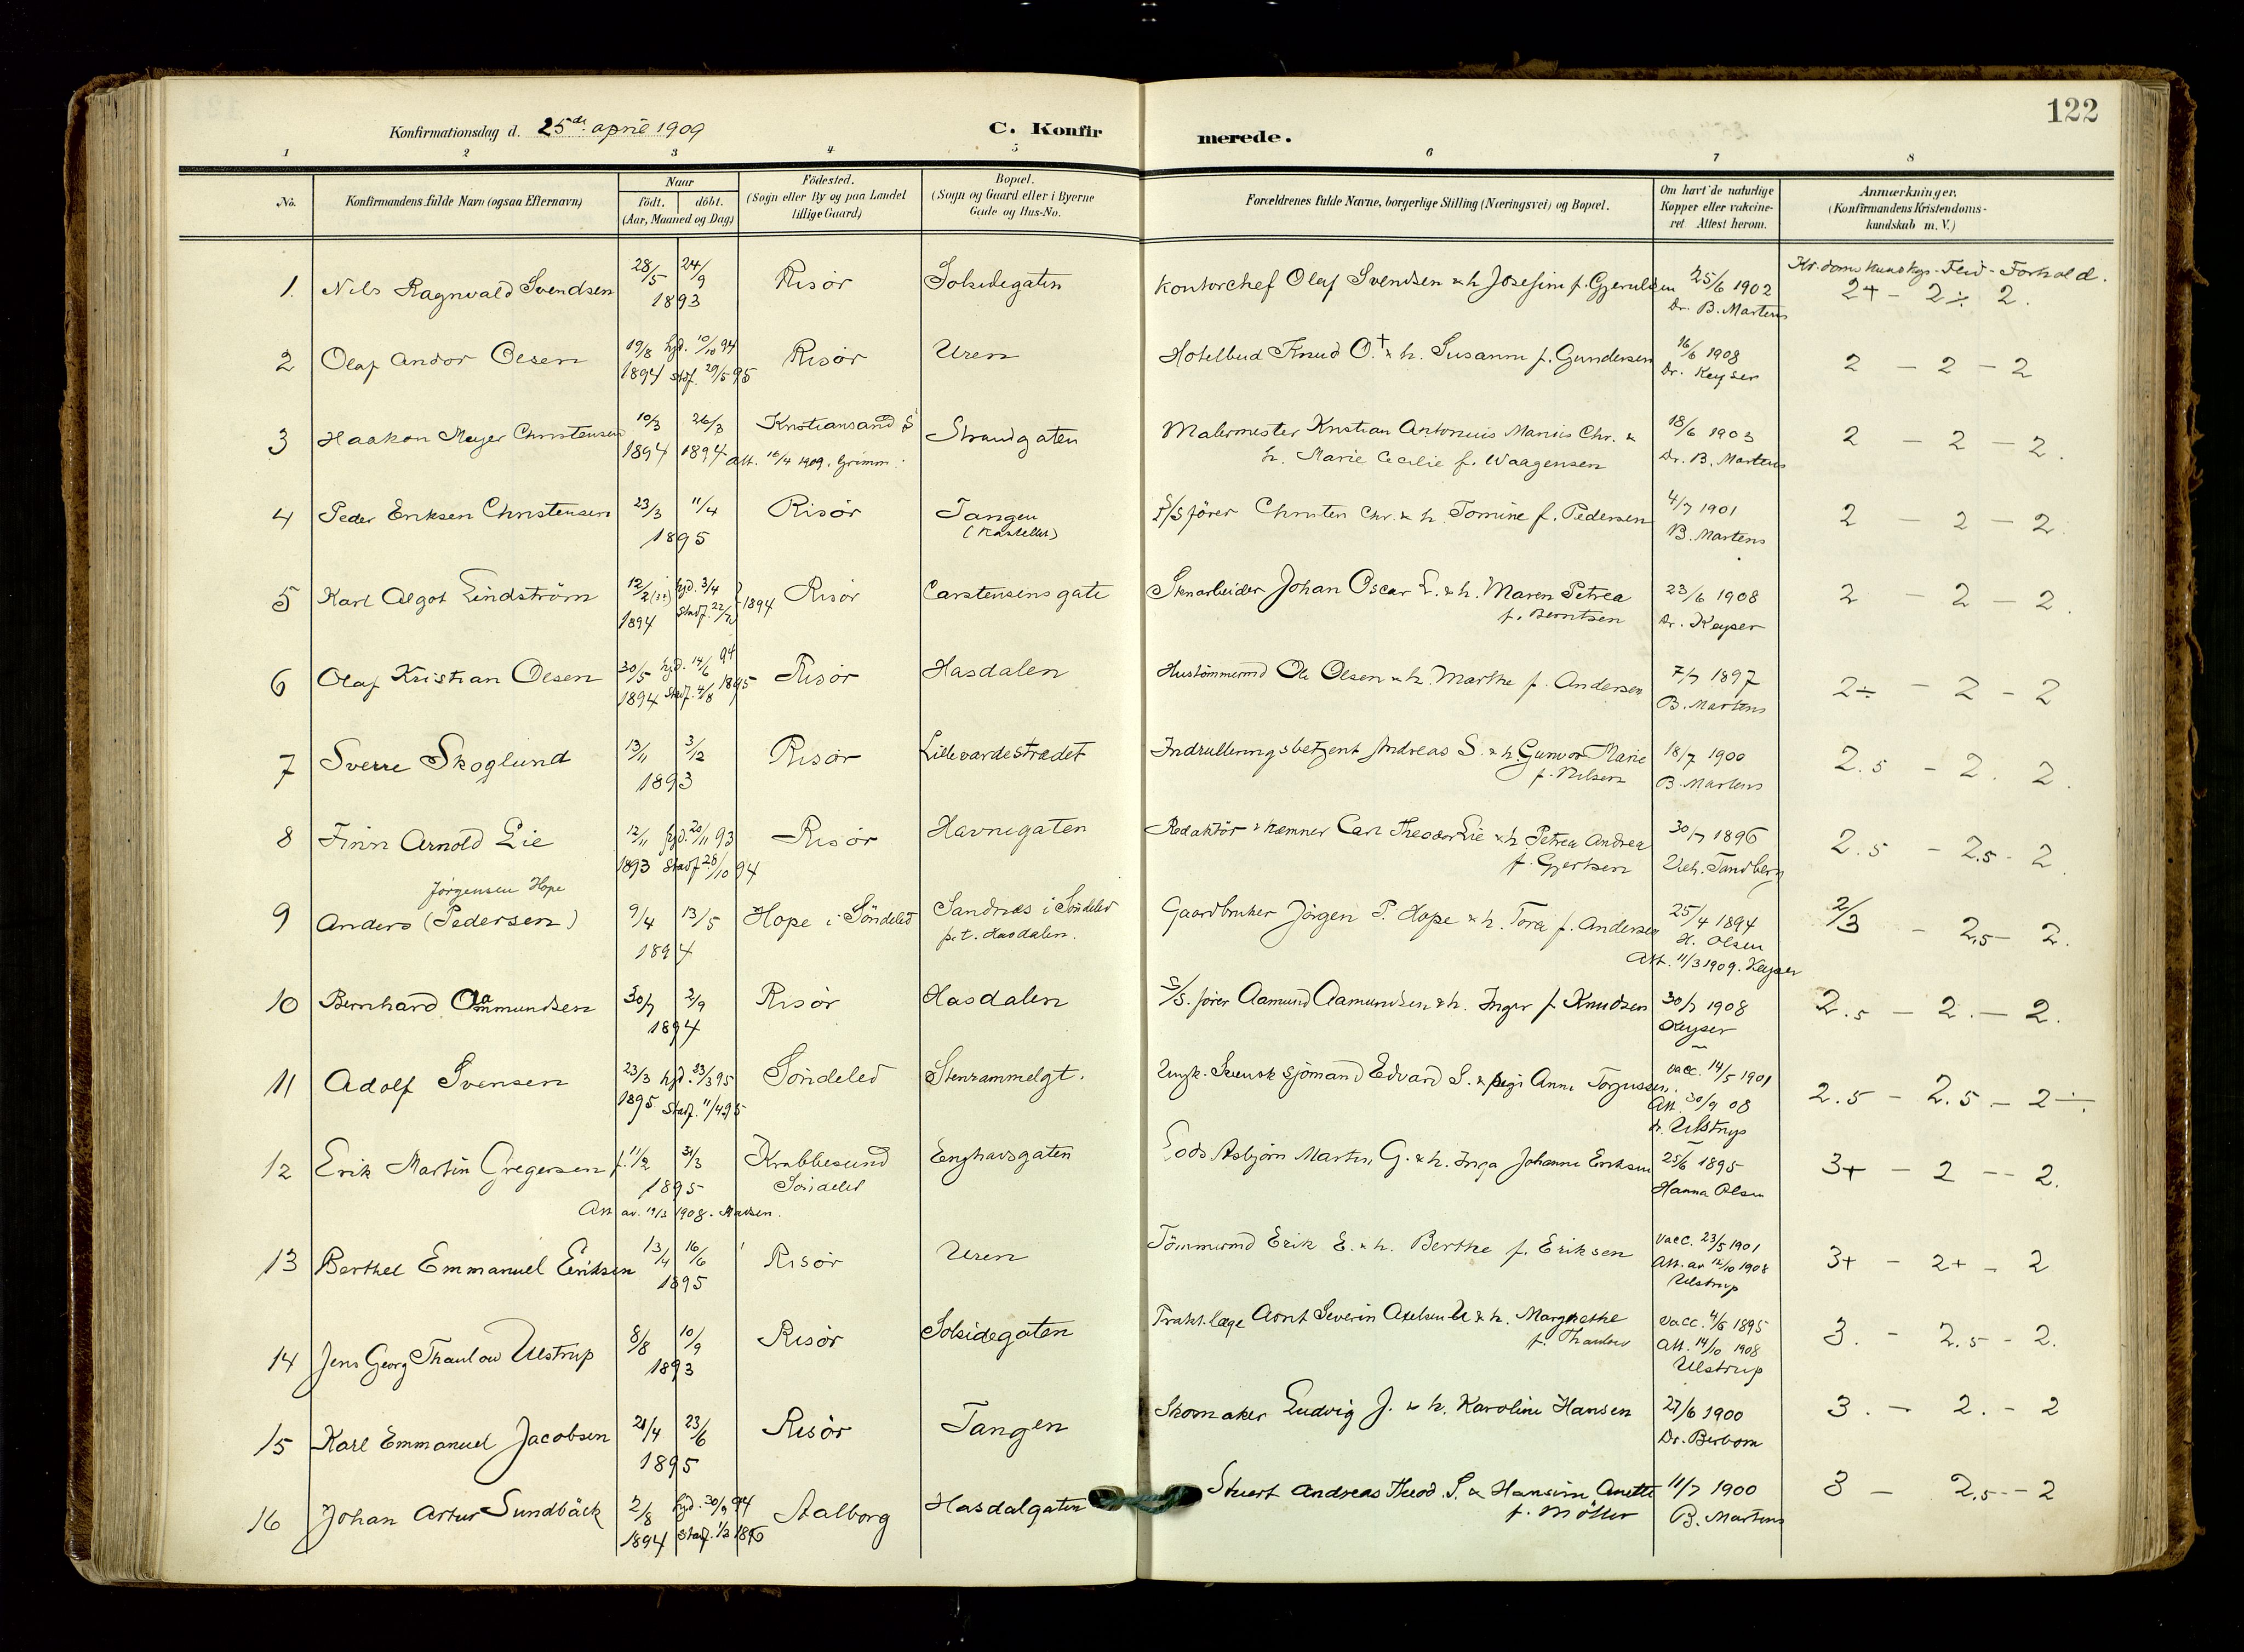 122
Konfirmationsdag d. 25de april 1909
C. Konfirmerede.
1 2 3 4 5 6 7 8
No. Konfirmandens fulde Navn (ogsaa Efternavn) Naar født. døbt. (Aar, Maaned og Dag) Fødested. (Sogn eller By og paa Landet tillige Gaard) Bopæl. (Sogn og Gaard eller i Byerne Gade og Hus-No. Forældrenes fulde Navne, borgerlige Stilling (Næringsvei) og Bopæl. Om havt de naturlige Kopper eller vakcineret Attest herom. Anmærkninger. (Konfirmandens Kristendomskundskab m. V.)
Kr.doms kundskap - Flid - Forhold.
1. Nils Ragnvald Svendsen 28/5 24/9 1893 Risør Solsidegaten Kontorchef Olaf Svendsen & h. Josefine f. Gjerulsen 25/6 1902 Dr. B. Martens 2+ - 2÷ 2.
2 Olaf Andor Olsen 19/8 1894 hjd. 10/10 94 stadf. 29/5 95 Risør Uren Hotelbud Knud O.† & h. Susanne f. Gundersen 16/6 1908 Dr. Keyser 2 - 2 - 2
3 Haakon Meyer Christensen 10/3 1894 26/3 1894 Kristiansand S Att. 16/4 1909. Grimm. Strandgaten Malermester Kristian Antonius Marius Chr. &
h. Marie Cecilie f. Waagensen 18/6 1903 Dr. B. Martens 2 - 2 - 2.
4 Peder Eriksen Christensen 23/3 11/4 1895 Risør Tangen (Kastellet) S/S fører Christen Chr. & h. Tomine f. Pedersen 4/7 1901 B. Martens 2 - 2 - 2
5 Karl Algot Lindström 12/2 1894 hjd. 3/4 Stadf. 22/ 1894 Risør Carstensens gate Stenarbeider Johan Oscar L. & h. Maren Petrea
f. Berntsen 23/6 1908 Dr. Keyser 2 - 2 - 2.
6 Olaf Kristian Olsen 30/5 1894 hjd. 14/6 94 Stadf. 4/8 1895 Risør Hasdalen Hustømmermd Ole Olsen & h. Marthe f. Andersen 7/7 1897 B. Martens 2÷ - 2 - 2
7 Sverre Skoglund 13/11 3/12 1893 Risør Lillevardestrædet Indrulleringsbetjent Andreas S. & h. Gunvor Marie
f. Nilsen 18/7 1900 B. Martens 2.5 - 2. 2.
8 Finn Arnold Lie 12/11 1893 hjd. 20/11 93 Stadf 28/10 94 Risør Havnegaten Redaktør & kæmner Carl Theodor Lie & h. Petrea Andrea
f. Gjertsen 30/7 1896 Vilh. Tandberg 2.5 - 2.5 - 2
Jørgensen Hope
9 Anders (Pedersen) 9/4 13/5 1894 Hope i Søndeled Sandnæs i Søndeled p.t. Hasdalen. Gaardbruker Jørgen P. Hope & h. Tora f. Andersen 25/4 1894 H. Olsen Att. 11/3 1909. Keyser 2/3 - 2.5 - 2.
10 Bernhard Aamundsen 30/7 2/9 1894 Risør Hasdalen S/S. fører Aamund Aamundsen & h. Inger f. Knudsen 30/7 1908 Keyser 2.5 - 2. - 2.
11 Adolf Svensen 23/3 1895 hjd. 23/3 95 Stadf. 11/4 95 Søndeled Stenrammelgt. Ungk. Svensk Sjømand Edvard S. & pige Anne Torjussen. vacc. 14/5 1901 Att. 30/9 08 dr. Ulstrup 2.5 - 2.5 - 2÷
12 Erik Martin Gregersen f. 11/2 31/3 1895 Krabbesund Søndeled Enghavsgaten Lods Asbjørn Martin G. & h. Inga Johanne Eriksen 25/6 1895 Hanna Olsen 3+ - 2 - 2.
Att av. 19/3 1908. Madsen.
13 Berthel Emmanuel Eriksen 13/4 16/6 1895 Risør Uren Tømmermd Erik E. & h. Berthe f. Eriksen vacc. 23/5 1901 Att. av 12/10 1908 Ulstrup 3+ - 2+ - 2
14 Jens Georg Thaulow Ulstrup 8/8 10/9 1893 Risør Solsidegaten Prakt. læge Arnt Severin Axelsen U & h. Margrethe
f. Thaulow vacc. 4/6 1895 Att. 14/10 1908 Ulstrup 3. - 2.5 - 2.
15 Karl Emmanuel Jacobsen 21/4 23/6 1895 Risør Tangen Skomaker Ludvig J. & h. Karoline Hansen 27/6 1900 Dr. Berbom 3. - 2. - 2
16 Johan Artur Sundbäck 2/8 1894 hjd. 30/9 94 Stadf. 1/3 1896 Aalborg Hasdalgaten Stuert Andreas Theod. S. & Hansine Anette
f. Möller 11/7 1900 B. Martens 3 - 2.5 - 2